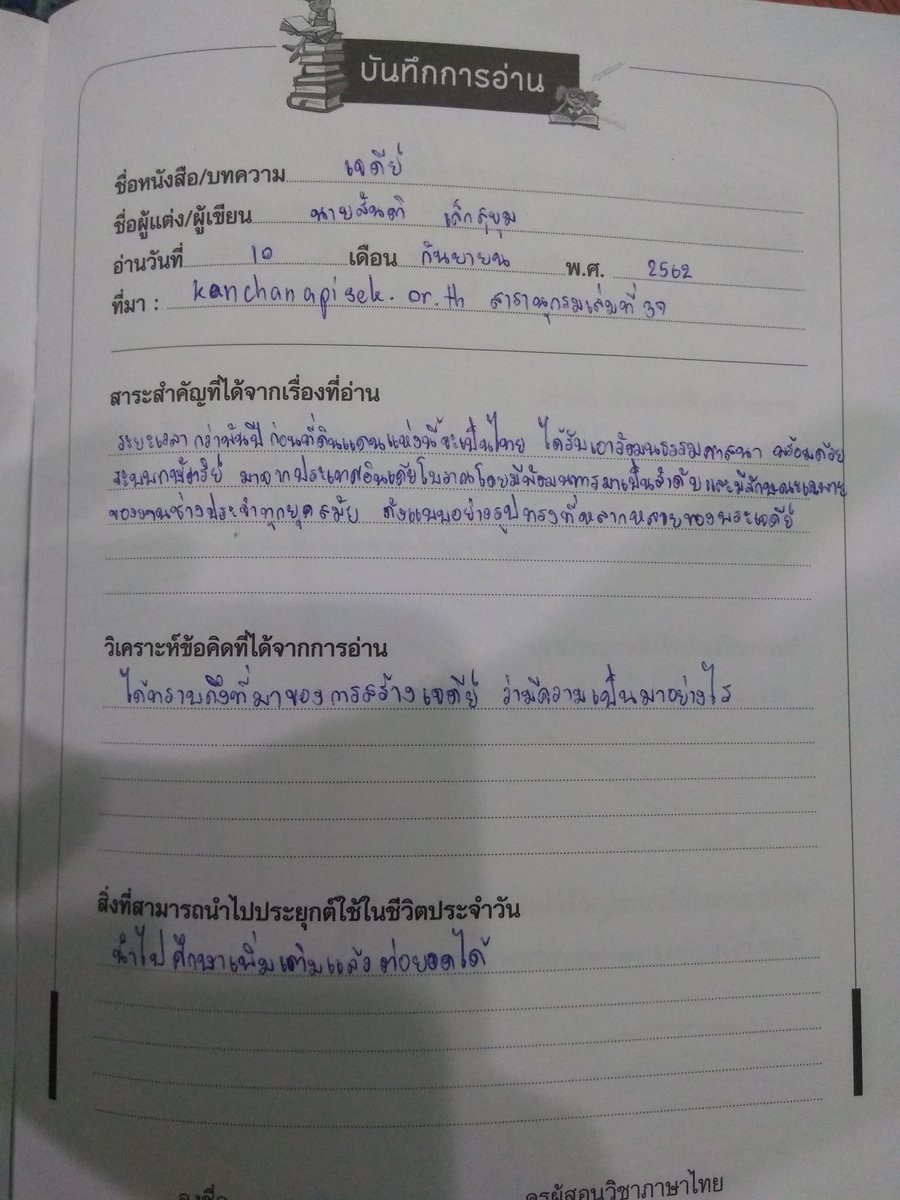 บันทึกการอ่าน
ชื่อหนังสือ/บทความ เจดีย์
ชื่อผู้แต่ง/ผู้เขียน นายสันติ เล็กสุขุม
อ่านวันที่ 10 เดือน กันยายน พ.ศ. 2562
ที่มา : kanchanapisek.or.th สารานุกรมเล่มที่ 39
สาระสำคัญที่ได้จากเรื่องที่อ่าน
ระยะเวลา กว่าพันปี ก่อนที่ดินแดนแห่งนี้จะเป็นไทย ได้รับเอาวัฒนธรรมศาสนา พร้อมด้วย
ระบบกษัตริย์ มาจากประเทศอินเดียโบราณโดยมีพัฒนาการมาเป็นลำดับและมีลักษณะเฉพาะ
ของงานช่างประจำทุกยุคสมัย ดังแบบอย่างรูปทรงที่หลากหลายของพระเจดีย์
วิเคราะห์ข้อคิดที่ได้จากการอ่าน
ได้ทราบถึงที่มาของการสร้างเจดีย์ ว่ามีความเป็นมาอย่างไร
สิ่งที่สามารถนำไปประยุกต์ใช้ในชีวิตประจำวัน
นำไปศึกษาเพิ่มเติมแล้วต่อยอดได้
ลงชื่อ ครูผู้สอนวิชาภาษาไทย